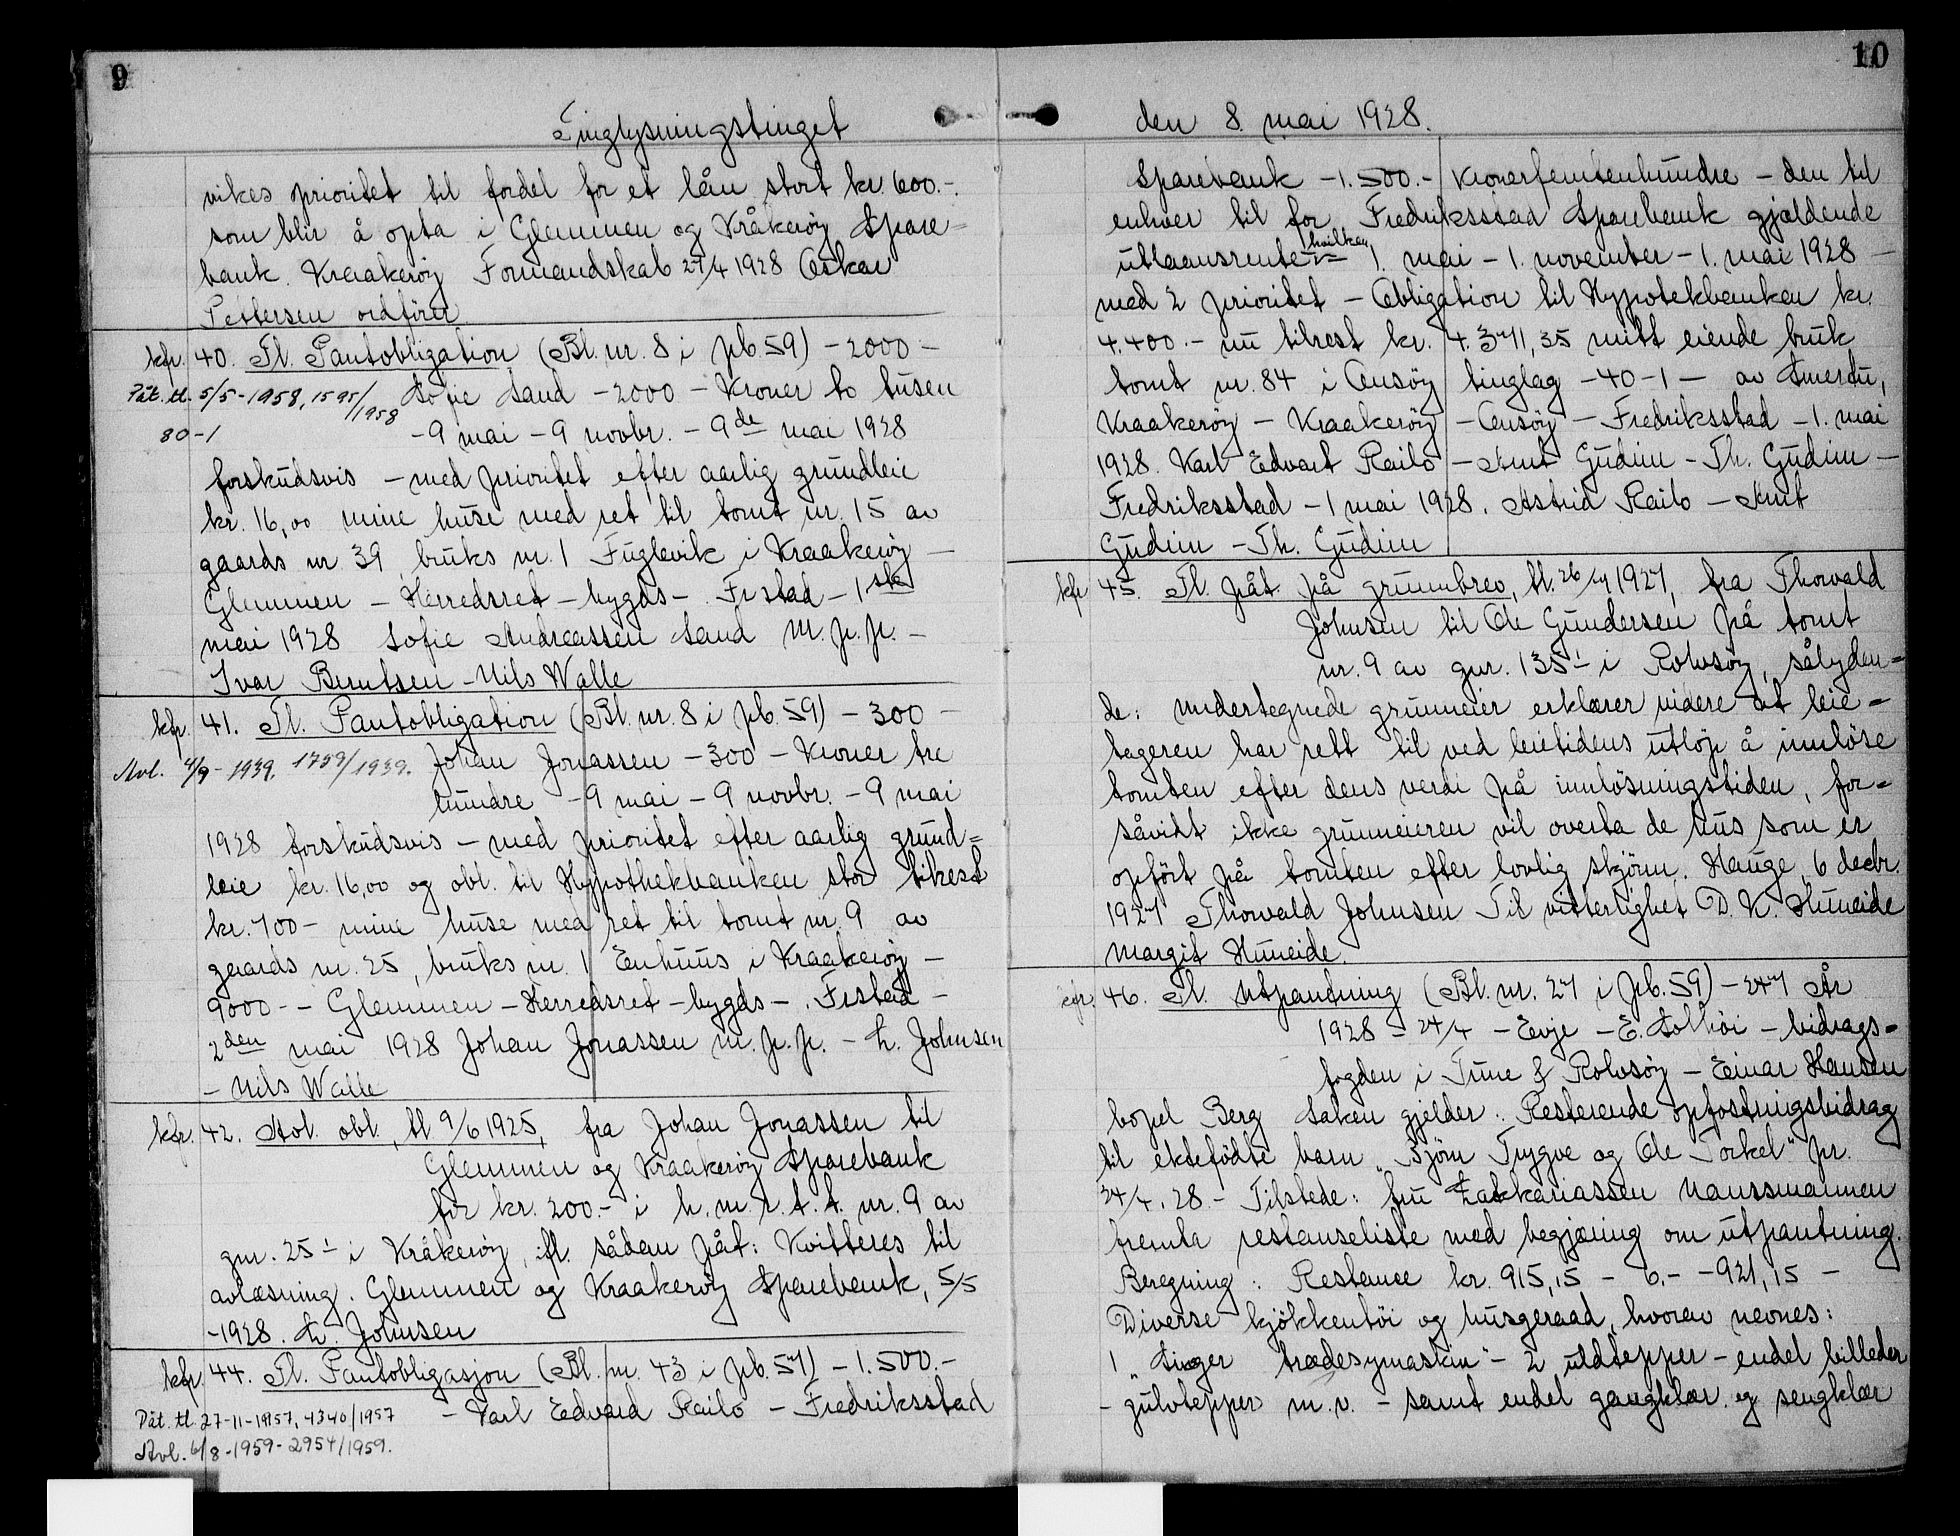 9
Tinglysningstinget
vikes prioritet til fordel for et lån stort kr. 600.-.
som blir å opta i Glemmen og Kråkerøy Spare-
bank. Kraakerøy Formandskab 27/4 1928 Oskar
Pettersen ordfører
kfr. 40. Tl. Pantobligation (Bl. nr. 8 i pb. 59) - 2000 -
Påt. tl. 5/5-1958, 1595/1958 Sofie Sand - 2000 - Kroner to tusen
80-1 - 9 mai - 9 novbr. - 9de mai 1928
forskudsvis - med prioritet efter aarlig grundleie
kr. 16,00 mine huse med ret til tomt nr. 15 av
gaards nr 39, bruks nr. 1 Fuglevik i Kraakerøy -
Glemmen - Herredsret - bygds - Frstad - 1ste
mai 1928 Sofie Andreassen Sand M. p. p. -
Ivar Berntsen - Nils Walle
kfr. 41. Tl. Pantobligation (Bl. nr. 8 i pb. 59) - 300 -
Avl. 4/9-1939. 1759/1939. Johan Jonassen - 300 - Kroner tre
hundre - 9 mai - 9 novbr. - 9 mai
1928 forskudsvis - med prioritet efter aarlig grund=
leie kr. 16,00 og obl. til Hypothekbanken stor tilrest
kr. 700 - mine huse med ret til tomt nr. 9 av
gaards nr. 25, bruks nr. 1 Enhuus i Kraakerøy -
9000 - - Glemmen - Herredsret - bygds - . Frstad -
2den mai 1928 Johan Jonassen m. p. p. - L. Johnsen
- Nils Walle
kfr. 42. Avl. obl., tl 9/6 1925, fra Johan Jonassen til
Glemmen og Kraakerøy Sparebank
for kr. 200.- i h. m. r. t. t. nr. 9 av
gnr. 25¹ i Kråkerøy, ifl. sådan påt: Kvitteres til
avlæsning. Glemmen og Kraakerøy Sparebank, 5/5
-1928. L. Johnsen
kfr. 44. Tl. Pantobligasjon (Bl. nr. 43 i pb. 57) - 1.500.-
Påt. tl. 27-11-1957, 4340/1957 - Karl Edvard Railo - Fredriksstad
Avl. 6/8-1959-2954/1959.
10
den 8. mai 1928.
Sparebank - 1.500.- Kronerfemtenhundre - den til
enhver til for Fredriksstad Sparebank gjældende
hvilken
utlaansrente 1. mai - 1. november - 1. mai 1928 -
med 2 prioritet - Obligation til Hypotekbanken kr.
4.400.- nu tilrest kr. 4.371,35 mitt eiende bruk
tomt nr. 84 i Onsøy tinglag - 40-1 - av Smerdu,
Kraakerøy - Kraakerøy - Onsøy - Fredriksstad - 1. mai
1928. Karl Edvart Railo - Arnt Gudim - Th. Gudim -
Fredriksstad - 1 mai 1928. Astrid Railo - Arnt
Gudim - Th. Gudim
kfr 45. Tl. påt på grunnbrev, tl. 26/4 1927, fra Thorvald
Johnsen til Ole Gundersen på tomt
nr. 9 av gnr. 135¹ i Rolvsøy, sålyden=
de: undertegnede grunneier erklærer videre at leie=
tageren har rett til ved leietidens utløp å innløse
tomten efter dens verdi på innløsningstiden, for=
såvidt ikke grunneieren vil overta de hus som er
opført på tomten efter lovlig skjønn. Hauge, 6 decbr.
1927 Thorvald Johnsen Til vitterlighet D. K. Huneide
Margit Huneide.
cfr. 46. Tl. Utpandning (Bl. nr. 27 i pb. 59) - 247 År
1928 - 24/4 - Evje - E. Solhøi - bidrags=
fogden i Tune & Rolvsøy - Einar Hansen
bopel Berg Saken gjelder: Resterende opfostringsbidrag
til ektefødte barn „Bjørn Trygve og Ole Torkel" pr.
24/4.28.- Tilstede: fru Zakkariassen Naussmannen
fremla restanseliste med begjæring om utpantning.
Beregning: Restance kr. 915,15 - 6.- - 921,15 -
Diverse kjøkkentøi og husgeraad, hvorav nevnes:
1 „Singer trædesymaskin" - 2 uldtepper - endel billeder
- gulvtepper m. v. - samt endel gangklær og sengklær